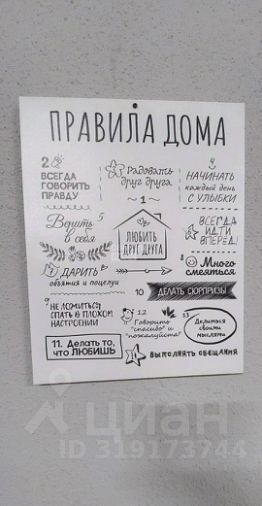 ПРАВИЛА ДОМА
2
ВСЕГДА
ГОВОРИТЬ
ПРАВДУ
Радовать
друг друга
1
НАЧИНАТЬ
каждый день
С УЛЫБКИ
Верить 5
в себя
ЛЮБИТЬ
ДРУГ ДРУГА
ВСЕГДА
ИДТИ
ВПЕРЕД!
7 ДАРИТЬ
объятия и поцелуи
Много
смеяться
10 ДЕЛАТЬ СЮРПРИЗЫ
НЕ ЛОЖИТЬСЯ
СПАТЬ В ПЛОХОМ
НАСТРОЕНИИ
12
Говорить
"спасибо" и
"пожалуйста"
13
Делиться
своими
мыслями
11. Делать то,
что ЛЮБИШЬ
ВЫПОЛНЯТЬ ОБЕЩАНИЯ
циан
ID 319173744